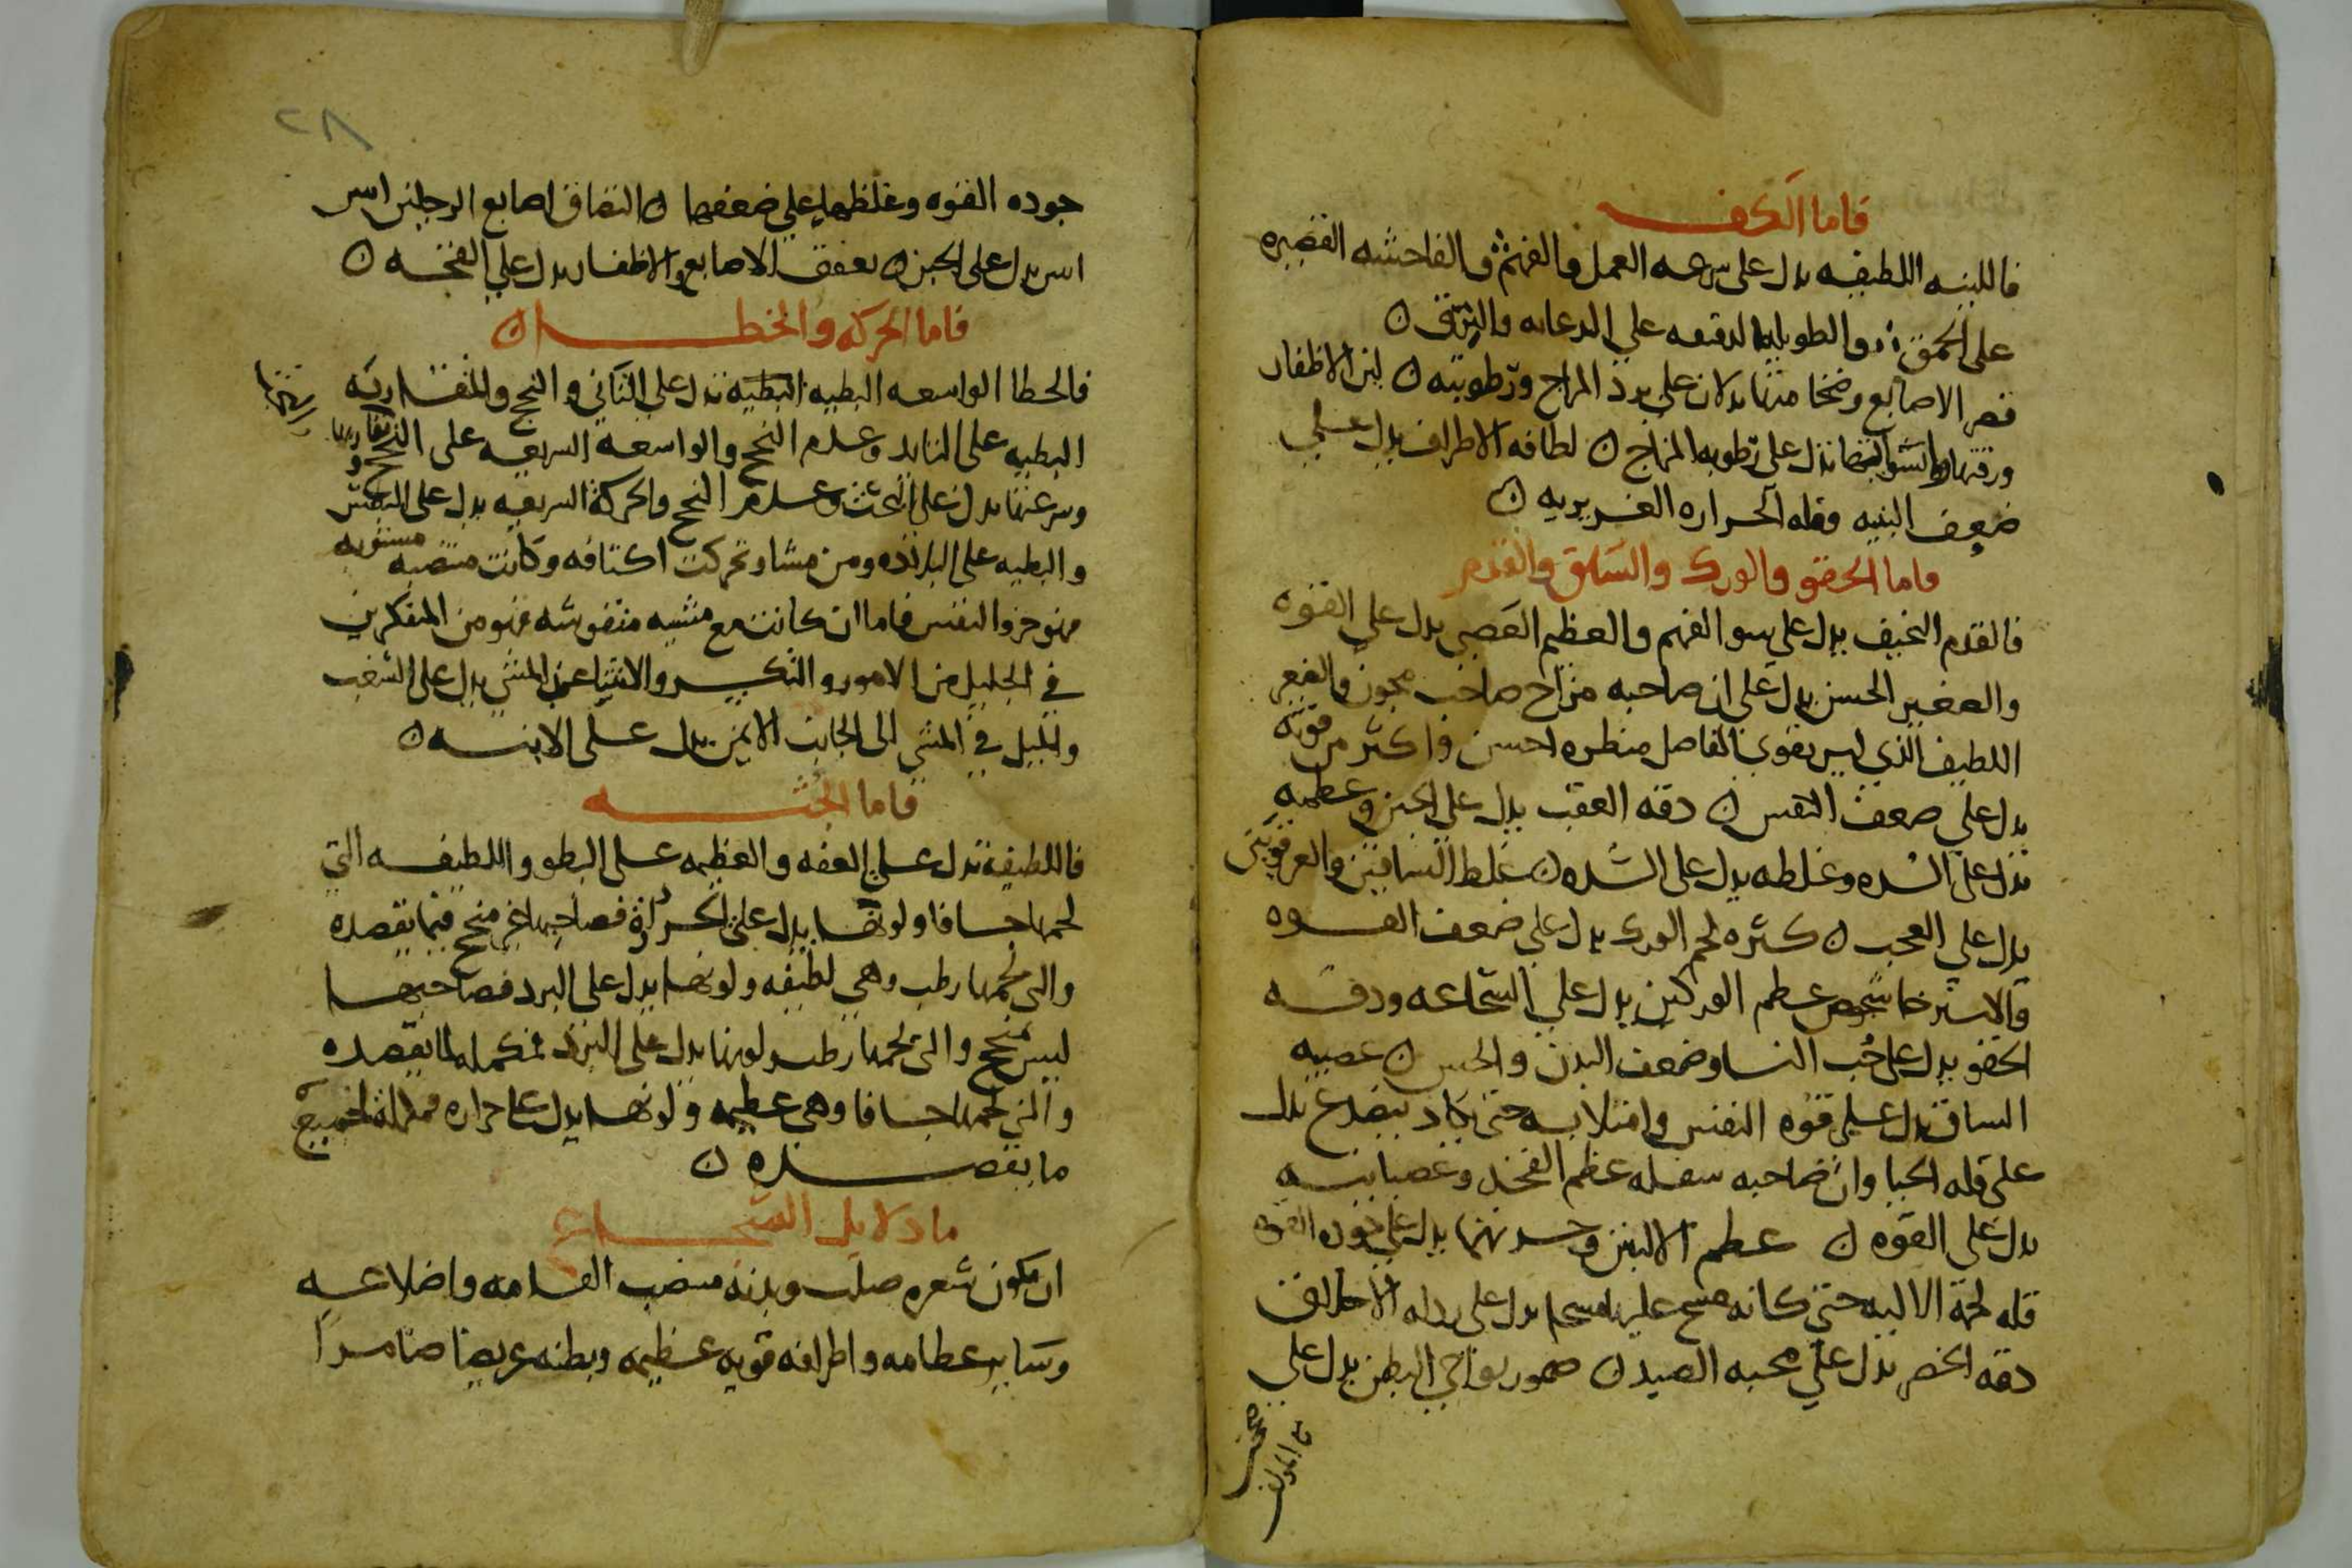 فاما الكف
فاللينه اللطيفه يدل على سرعه العمل والفهم والفاحشه القصيره
على الحمق والطويله الدقيقه على الدعابه
قصر الاصابع وضخامتها يدلان على برد المزاج ورطوبته ن لين الاظفار
ورقتها تدل على رطوبه المزاج ن لطافه الاطراف يدل على
ضعف البنيه وقله الحراره الغريزيه ن
فاما الحقو والورك والساق والقدم
فالقدم النحيف يدل على سو الفهم والعظيم العصبى يدل على القوه
والصغير الحسن يدل على ان صاحبه مزاح صاحب مجون
اللطيف الذي ليس بقوي المفاصل منظره احسن واكثر من قوته
يدل على ضعف النفس ن دقه العقب يدل على الجبن وعظمه
تدل على الشده وغلظه يدل على الشده ن غلظ الساقين والعرقوبين
يدل على العجب ن كثره لحم الورك يدل على ضعف القوه
والاسترخا عظم الوركين يدل على الشجاعه ودقه
الحقو يدل على حب النسا وضعف البدن والجبن ن عصبيه
الساق يدل على قوه النفس وامتلاءه حتى يكاد ينصدع يدل
على قله الحيا وان صاحبه سفله عظم الفخذ وعصبانيته
يدل على القوه ن عظم الاليتين وحسنهما يدل على جوده القوه
قله لحم الاليه حتى كانه مسح عليها مسحا يدل على رداه الاخلاق
دقه الخصر يدل على محبه الصيد ن ضمور نواحي البطن يدل على
جوده القوه وغلظهما على ضعفهما ن التفاف اصابع الرجلين
يدل على الجبن ن تعقف الاصابع والاظفار يدل على القحه ن
فاما الحركه والخطا ن
فالخطا الواسعه البطيه تدل على التاني والنجح والمتقاربه
البطيه على التايد وعدم النجح والواسعه السريعه على النجح
وسرعتها يدل على العبث وعدم النجح والحركه السريعه يدل على
والبطيه على البلاده ومن مشا وتحركت اكتافه وكانت منتصبه مستويه
فهو حر النفس فاما ان كانت مع مشيه متقوسه فهو من المتفكرين
في الجليل من الامور والتكبير والانثنا عند المشي يدل على الشغب
والميل في المشي الى الجانب الايمن يدل على الابنه ن
فاما الجثه
فاللطيفه تدل على العفه والعظيمه على البطو واللطيفه التي
لحمها جافا ولونها يدل على الحراره فصاحبها غير منجح فيما يقصده
والتي لحمها رطب وهي لطيفه ولونها يدل على البرد فصاحبها
ليس منجح والتي لحمها رطب ولونها يدل على البرد لما يقصده
والتي لحمها جافا وهي عظيمه ولونها يدل على حراره لجميع
ما يقصده ن
ما دلايل الشجاع
ان يكون شعره صلب وبدنه منتصب القامه واضلاعه
وساير عظامه واطرافه قويه عظيمه وبطنه عريضا ضامرا